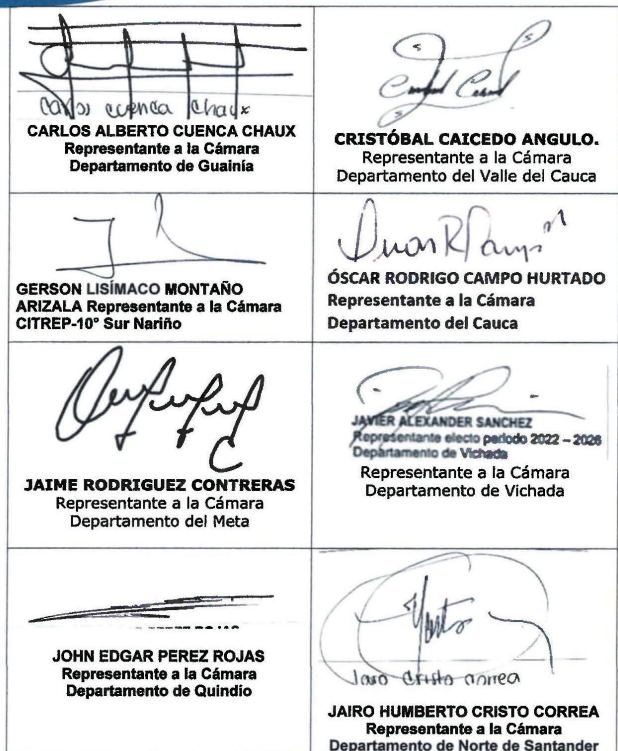 Carlos Cuenca Chaux
CARLOS ALBERTO CUENCA CHAUX
Representante a la Cámara
Departamento de Guainía
CRISTÓBAL CAICEDO ANGULO.
Representante a la Cámara
Departamento del Valle del Cauca
GERSON LISÍMACO MONTAÑO
ARIZALA Representante a la Cámara
CITREP-10° Sur Nariño
ÓSCAR RODRIGO CAMPO HURTADO
Representante a la Cámara
Departamento del Cauca
JAIME RODRIGUEZ CONTRERAS
Representante a la Cámara
Departamento del Meta
JAVIER ALEXANDER SANCHEZ
Representante electo periodo 2022 – 2026
Departamento de Vichada
Representante a la Cámara
Departamento de Vichada
JOHN EDGAR PEREZ ROJAS
Representante a la Cámara
Departamento de Quindio
Cristo Correa
JAIRO HUMBERTO CRISTO CORREA
Representante a la Cámara
Departamento de Norte de Santander